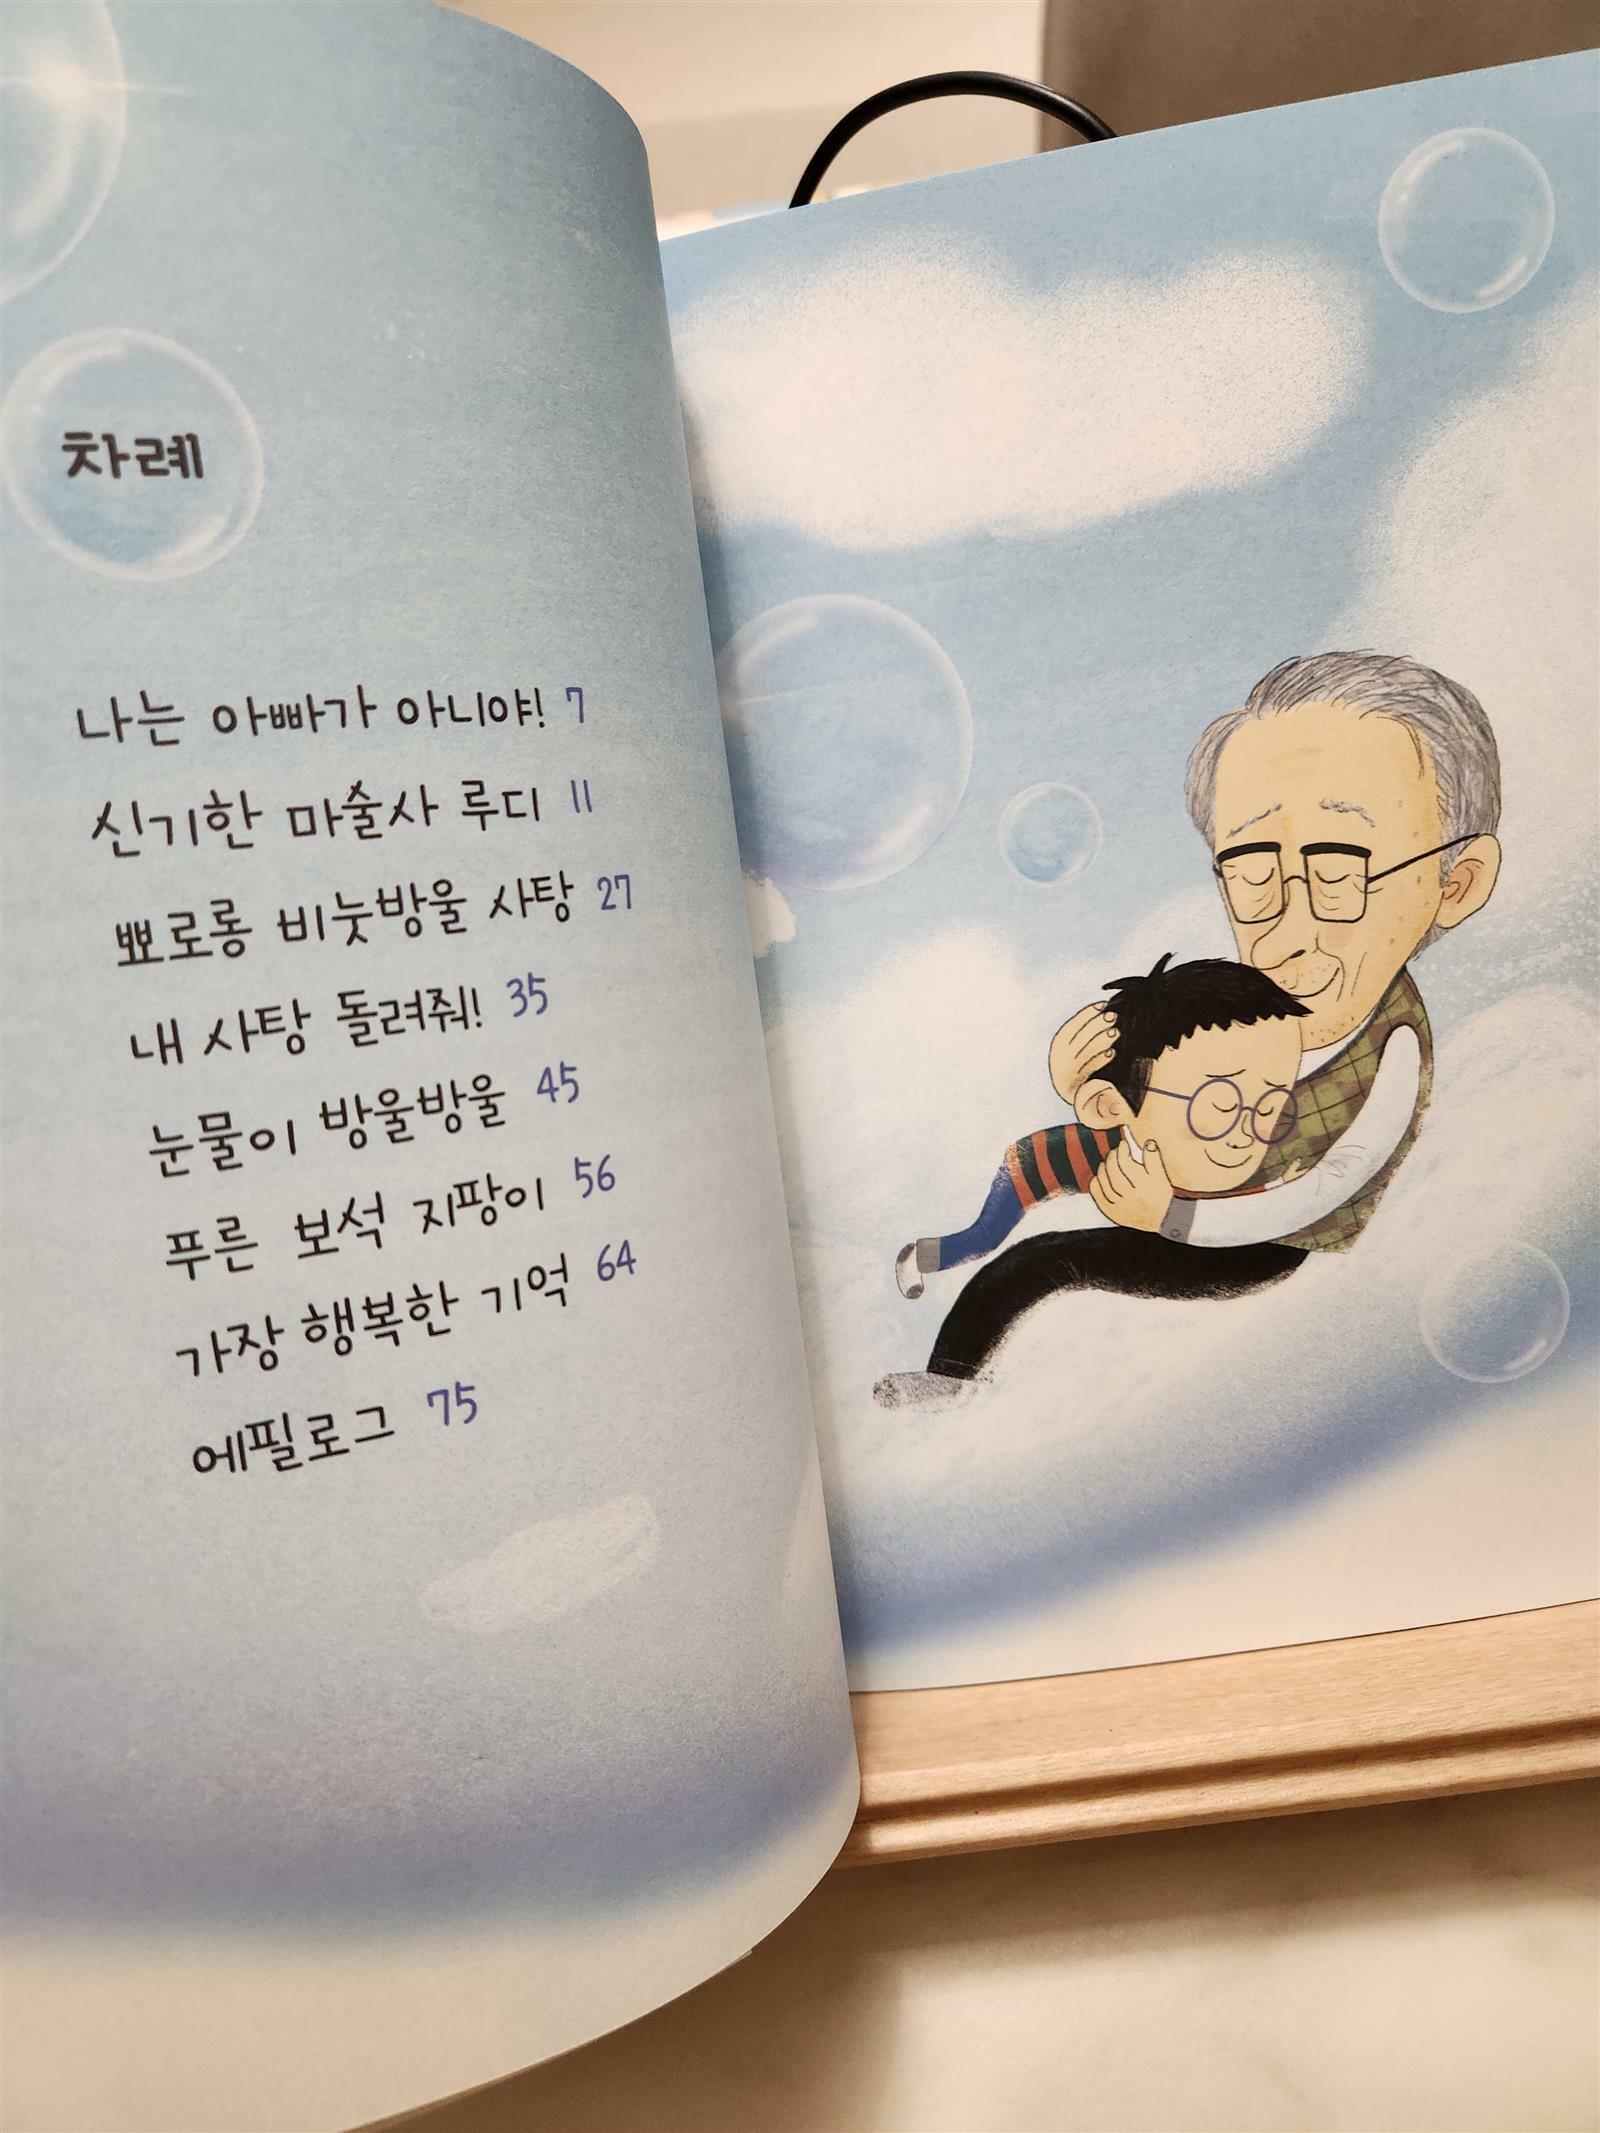 차례
나는 아빠가 아니야! 7
신기한 마술사 루디 11
뾰로롱 비눗방울 사탕 27
내 사탕 돌려줘! 35
눈물이 방울방울 45
푸른 보석 지팡이 56
가장 행복한 기억 64
에필로그 75